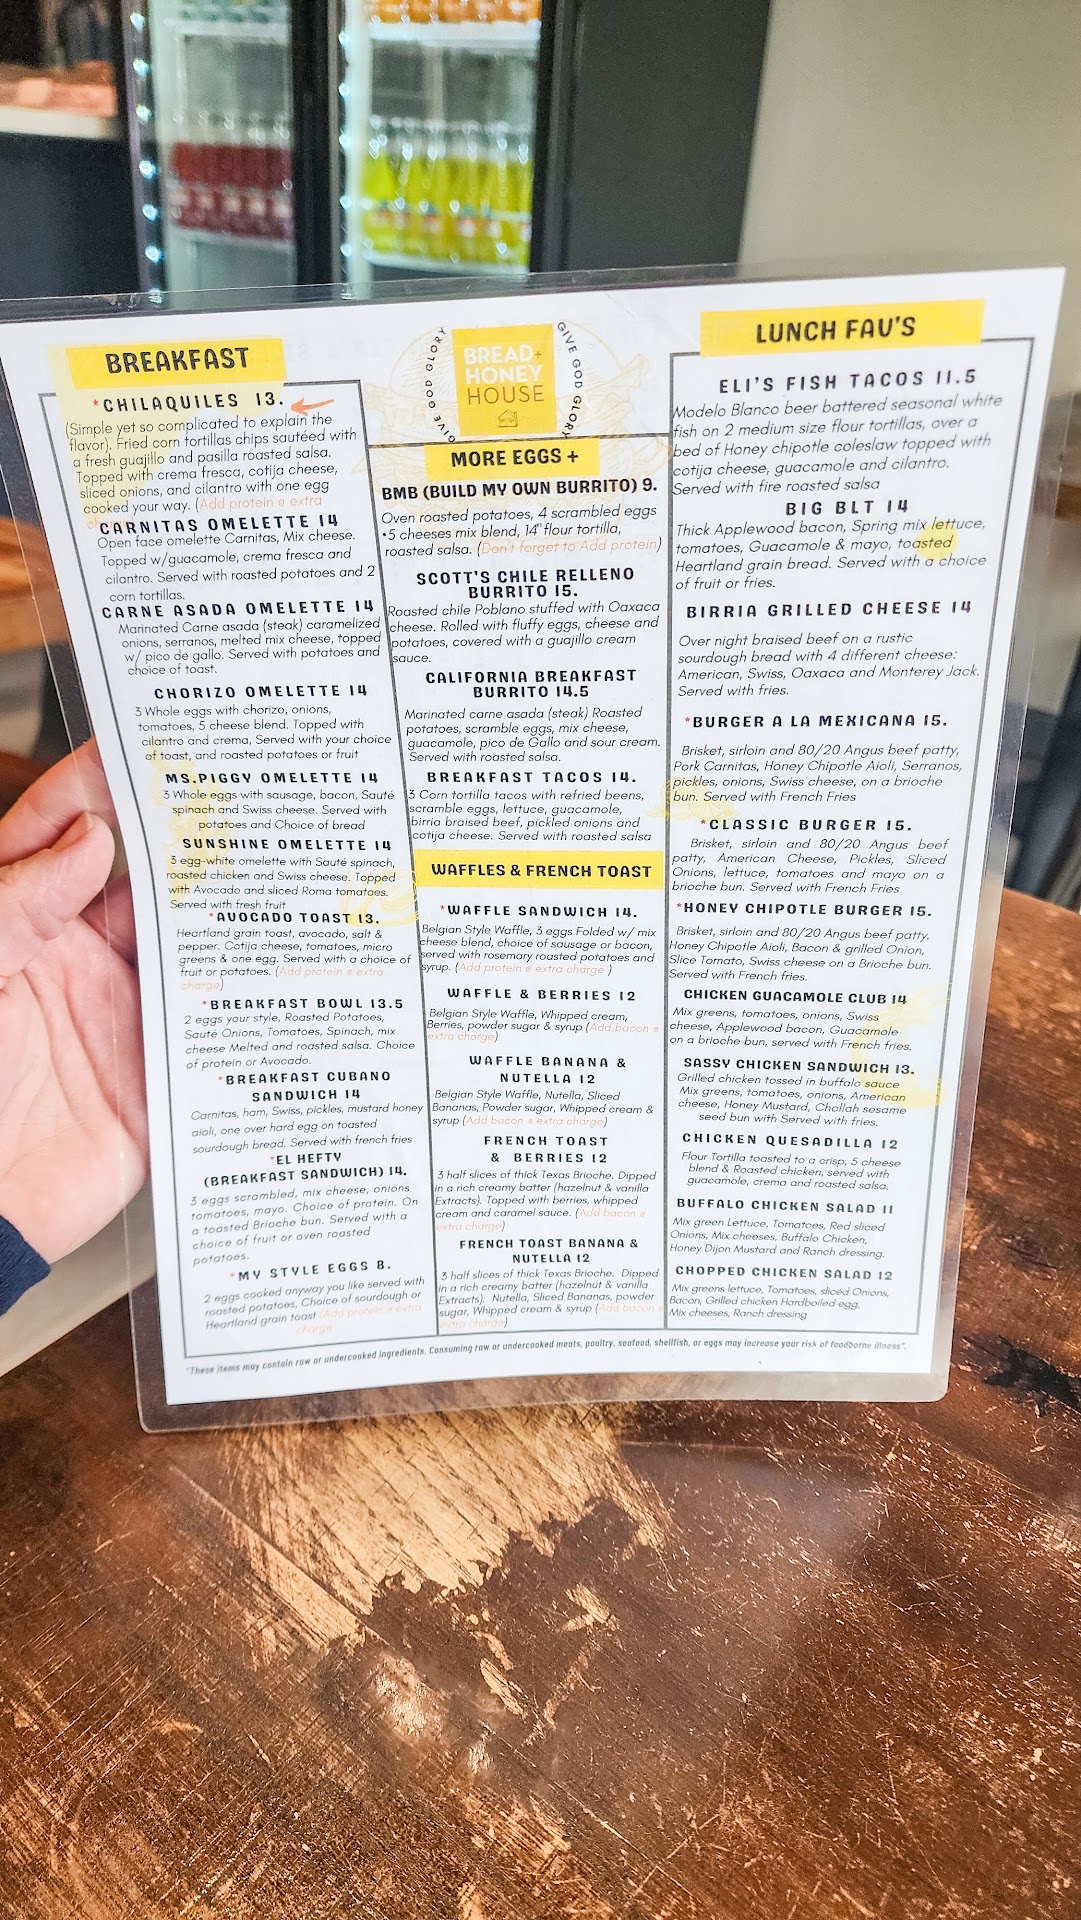 BREAKFAST
*CHILAQUILES 13.
(Simple yet so complicated to explain the
flavor), Fried corn tortillas chips sautéed with
a fresh guajillo and pasilla roasted salsa.
Topped with crema fresca, cotija cheese,
sliced onions, and cilantro with one egg
cooked your way. (Add protein @ extra
CARNITAS OMELETTE 14
Open face omelette Carnitas, Mix cheese.
Topped w/guacamole, crema fresca and
cilantro. Served with roasted potatoes and 2
corn tortillas.
CARNE ASADA OMELETTE 14
Marinated Carne asada (steak) caramelized
onions, serranos, melted mix cheese, topped
w/ pico de gallo. Served with potatoes and
choice of toast.
CHORIZO OMELETTE 14
3 Whole eggs with chorizo, onions,
tomatoes, 5 cheese blend. Topped with
cilantro and crema, Served with your choice
of toast, and roasted potatoes or fruit
MS.PIGGY OMELETTE 14
3 Whole eggs with sausage, bacon, Sauté
spinach and Swiss cheese. Served with
potatoes and Choice of bread
SUNSHINE OMELETTE 14
3 egg-white omelette with Sauté spinach,
roasted chicken and Swiss cheese. Topped
with Avocado and sliced Roma tomatoes.
Served with fresh fruit
*AVOCADO TOAST 13.
Heartland grain toast, avocado, salt &
pepper. Cotija cheese, tomatoes, micro
greens & one egg. Served with a choice of
fruit or potatoes. (Add protein @ extra
charge)
*BREAKFAST BOWL 13.5
2 eggs your style, Roasted Potatoes,
Sauté Onions, Tomatoes, Spinach, mix
cheese Melted and roasted salsa. Choice
of protein or Avocado.
*BREAKFAST CUBANO
SANDWICH 14
Carnitas, ham, Swiss, pickles, mustard honey
aioli, one over hard egg on toasted
sourdough bread. Served with french fries
*EL HEFTY
(BREAKFAST SANDWICH) 14.
3 eggs scrambled, mix cheese, onions
tomatoes, mayo. Choice of protein. On
a toasted Brioche bun. Served with a
choice of fruit or oven roasted
potatoes.
*MY STYLE EGGS 8.
2 eggs cooked anyway you like served with
roasted potatoes, Choice of sourdough or
Heartland grain toast (Add protein @ extra
charge
GIVE GOD GLORY
BREAD+
HONEY
HOUSE
GIVE GOD GLORY
MORE EGGS +
BMB (BUILD MY OWN BURRITO) 9.
Oven roasted potatoes, 4 scrambled eggs
•5 cheeses mix blend, 14" flour tortilla,
roasted salsa. (Don't forget to Add protein)
SCOTT'S CHILE RELLENO
BURRITO 15.
Roasted chile Poblano stuffed with Oaxaca
cheese. Rolled with fluffy eggs, cheese and
potatoes, covered with a guajillo cream
sauce.
CALIFORNIA BREAKFAST
BURRITO 14.5
Marinated carne asada (steak) Roasted
potatoes, scramble eggs, mix cheese,
guacamole, pico de Gallo and sour cream.
Served with roasted salsa.
BREAKFAST TACOS 14.
3 Corn tortilla tacos with refried beens,
scramble eggs, lettuce, guacamole,
birria braised beef, pickled onions and
cotija cheese. Served with roasted salsa
WAFFLES & FRENCH TOAST
*WAFFLE SANDWICH 14.
Belgian Style Waffle, 3 eggs Folded w/ mix
cheese blend, choice of sausage or bacon,
served with rosemary roasted potatoes and
syrup. (Add protein @ extra charge )
WAFFLE & BERRIES 12
Belgian Style Waffle, Whipped cream,
Berries, powder sugar & syrup (Add bacon @
extra charge)
WAFFLE BANANA &
NUTELLA 12
Belgian Style Waffle, Nutella, Sliced
Bananas, Powder sugar, Whipped cream &
syrup (Add bacon @ extra charge)
FRENCH TOAST
& BERRIES 12
3 half slices of thick Texas Brioche. Dipped
in a rich creamy batter (hazelnut & vanilla
Extracts). Topped with berries, whipped
cream and caramel sauce. (Add bacon @
extra charge)
FRENCH TOAST BANANA &
NUTELLA 12
3 half slices of thick Texas Brioche. Dipped
in a rich creamy batter (hazelnut & vanilla
Extracts). Nutella, Sliced Bananas, powder
sugar, Whipped cream & syrup (Add bacon @
extra charge)
LUNCH FAV'S
ELI'S FISH TACOS 11.5
Modelo Blanco beer battered seasonal white
fish on 2 medium size flour tortillas, over a
bed of Honey chipotle coleslaw topped with
cotija cheese, guacamole and cilantro.
Served with fire roasted salsa
BIG BLT 14
Thick Applewood bacon, Spring mix lettuce,
tomatoes, Guacamole & mayo, toasted
Heartland grain bread. Served with a choice
of fruit or fries.
BIRRIA GRILLED CHEESE 14
Over night braised beef on a rustic
sourdough bread with 4 different cheese:
American, Swiss, Oaxaca and Monterey Jack.
Served with fries.
*BURGER A LA MEXICANA 15.
Brisket, sirloin and 80/20 Angus beef patty,
Pork Carnitas, Honey Chipotle Aioli, Serranos,
pickles, onions, Swiss cheese, on a brioche
bun. Served with French Fries
*CLASSIC BURGER 15.
Brisket, sirloin and 80/20 Angus beef
patty, American Cheese, Pickles, Sliced
Onions, lettuce, tomatoes and mayo on a
brioche bun. Served with French Fries
*HONEY CHIPOTLE BURGER 15.
Brisket, sirloin and 80/20 Angus beef patty.
Honey Chipotle Aioli, Bacon & grilled Onion,
Slice Tomato, Swiss cheese on a Brioche bun.
Served with French fries.
CHICKEN GUACAMOLE CLUB 14
Mix greens, tomatoes, onions, Swiss
cheese, Applewood bacon, Guacamole
on a brioche bun, served with French fries.
SASSY CHICKEN SANDWICH 13.
Grilled chicken tossed in buffalo sauce
Mix greens, tomatoes, onions, American
cheese, Honey Mustard, Challah sesame
seed bun with Served with fries.
CHICKEN QUESADILLA 12
Flour Tortilla toasted to a crisp, 5 cheese
blend & Roasted chicken, served with
guacamole, crema and roasted salsa.
BUFFALO CHICKEN SALAD 11
Mix green Lettuce, Tomatoes, Red sliced
Onions, Mix cheeses, Buffalo Chicken,
Honey Dijon Mustard and Ranch dressing.
CHOPPED CHICKEN SALAD 12
Mix greens lettuce, Tomatoes, sliced Onions,
Bacon, Grilled chicken Hardboiled egg,
Mix cheeses, Ranch dressing
*These items may contain raw or undercooked ingredients. Consuming raw or undercooked meats, poultry, seafood, shellfish, or eggs may increase your risk of foodborne illness".